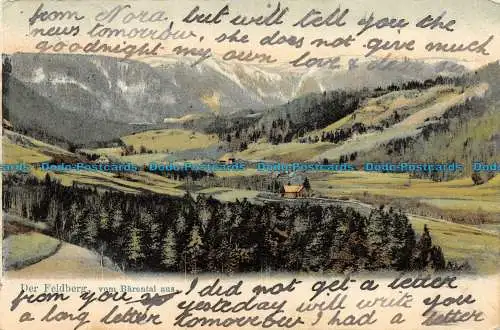 from Nora, but will tell you the
news tomorrow, she does not give much
goodnight my own love &
Dodo-Postcards Dodo-Postcards Dodo-Postcards Dodo-Postcards Dodo-Postcards
Der Feldberg, vom Bärental aus.
I did not get a letter
from you yesteday will write you
a long letter tomorrow I had a letter